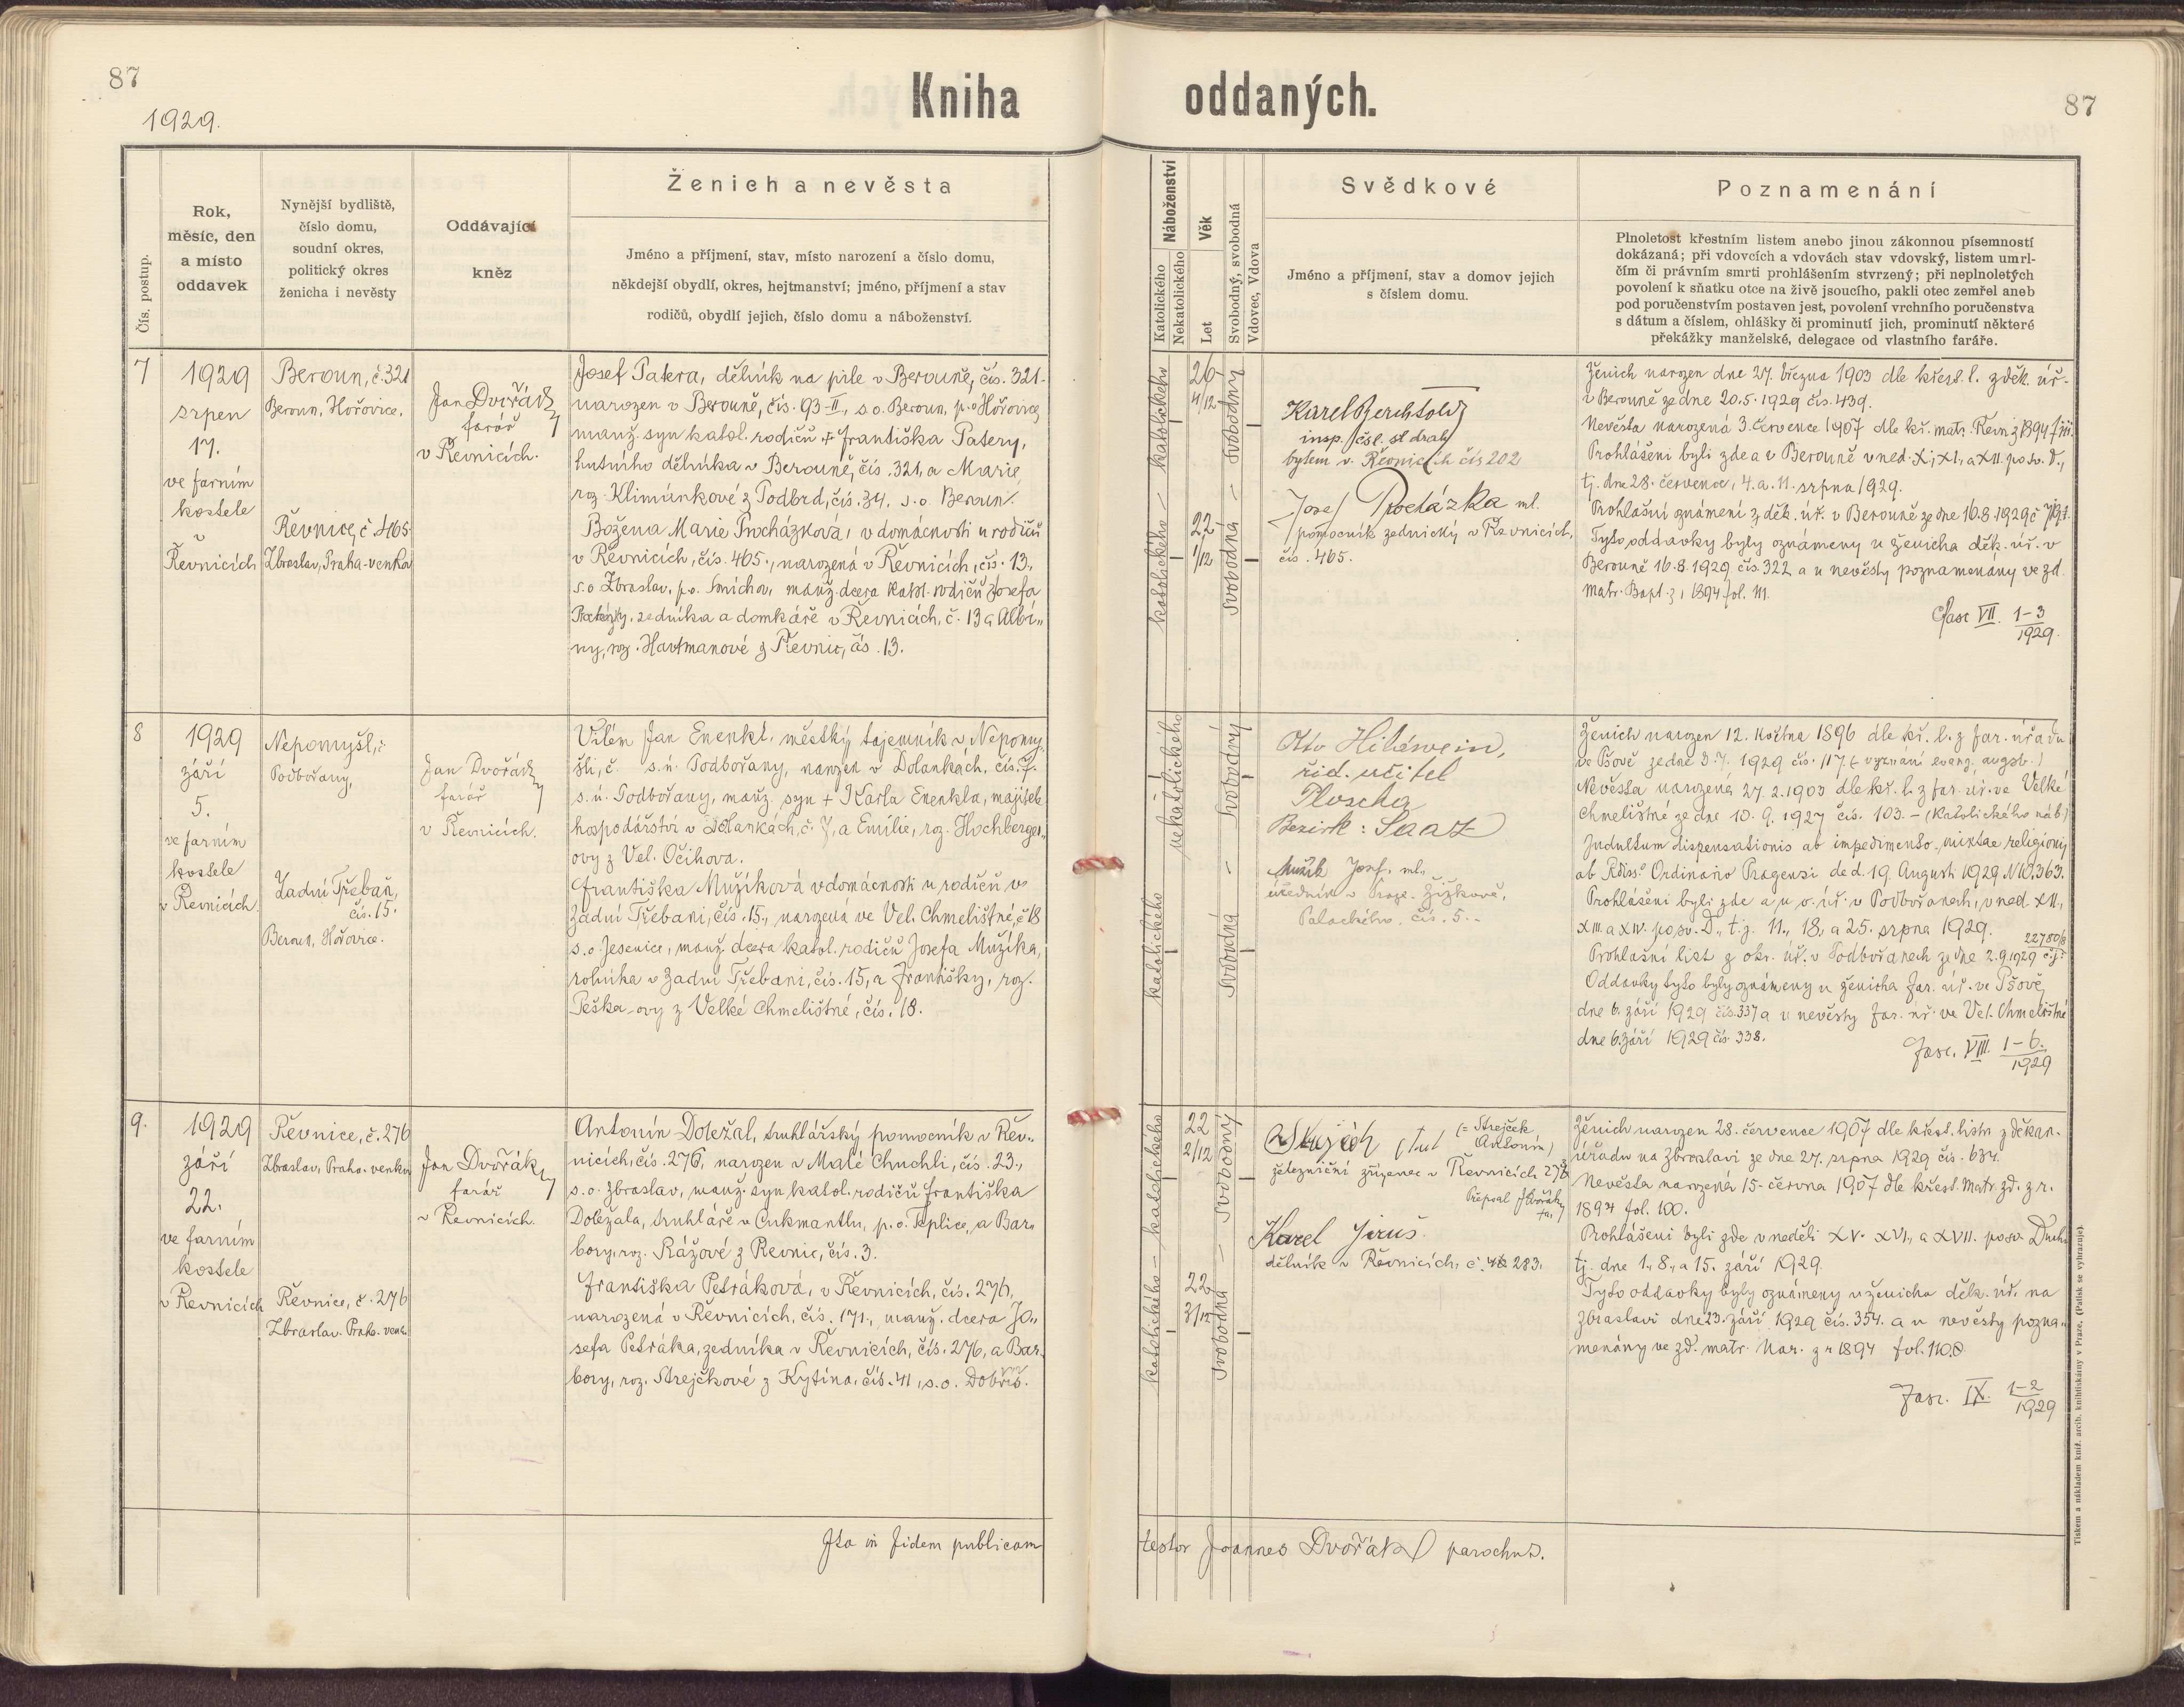 87
Kniha
oddaných.
87
1929.
Čís. postup.
Rok,
měsíc, den
a místo
oddavek
Nynější bydliště,
číslo domu,
soudní okres,
politický okres
ženicha i nevěsty
Oddávající
kněz
Ženich a nevěsta
Jméno a příjmení, stav, místo narození a číslo domu,
někdejší obydlí, okres, hejtmanství; jméno, příjmení a stav
rodičů, obydlí jejich, číslo domu a náboženství.
Náboženství
Katolického
Nekatolického
Věk
Let
Svobodný, svobodná
Vdovec, Vdova
Svědkové
Jméno a příjmení, stav a domov jejich
s číslem domu.
Poznamenání
Plnoletost křestním listem anebo jinou zákonnou písemností
dokázaná; při vdovcích a vdovách stav vdovský, listem umrl-
čím či právním smrti prohlášením stvrzený; při neplnoletých
povolení k sňatku otce na živě jsoucího, pakli otec zemřel aneb
pod poručenstvím postaven jest, povolení vrchního poručenstva
s dátum a číslem, ohlášky či prominutí jich, prominutí některé
překážky manželské, delegace od vlastního faráře.
7
1929
srpen
17.
ve farním
kostele
v
Řevnicích
Beroun, č. 321
Beroun, Hořovice.
Řevnice, č 465
Zbraslav, Praha-venkov
Jan Dvořák,
farář
v Řevnicích.
Josef Patera, dělník na pile v Berouně, čís. 321.
narozen v Berouně, čís. 93-II, s.o. Beroun, p.o Hořovice,
manž. syn katol. rodičů + Františka Patery,
hutního dělníka v Berouně, čís. 321, a Marie,
roz. Klimúnkové z Podbrd, čís. 34. s.o. Beroun.
Božena Marie Procházková, v domácnosti u rodičů
v Řevnicích, čís. 465., narozená v Řevnicích, čís. 13,
s.o Zbraslav, p.o. Smíchov, manž. dcera katol. rodičů Josefa
Procházky, zedníka a domkáře v Řevnicích, č. 13 a Albí„
ny, roz. Hartmanové z Řevnic, čís. 13.
katolického – katolického
26
4/12
22
1/12
Svobodná – Svobodný
Karel Berchtold
insp. čsl. st drah
bytem v. Řevnicích čís 202
Josef Procházka ml.
pomocník zednický v Řevnicích,
čís. 465.
Ženich narozen dne 27. března 1903 dle křest. l. z děk. úř.
v Berouně ze dne 20.5.1929 čís. 439.
Nevěsta narozená 3. července 1907 dle kř. matr. Řevn z 1894 f 111.
Prohlášeni byli zde a v Berouně v ned. X., XI., a XII. po sv. D.,
tj. dne 28. července, 4. a. 11. srpna 1929.
Prohlašní oznámení z děk. úř. v Berouně ze dne 16.8.1929 č
Tyto oddavky byly oznámeny u ženicha děk. úř. v
Berouně 16.8.1929 čís. 322 a u nevěsty poznamenány ve zd.
matr. Bapt. z, 1894 fol. 111.
Fasc VII. 1-3
1929.
8
1929
září
5.
ve farním
kostele
v Řevnicích.
Nepomyšl, č
Podbořany,
Zadní Třebaň,
čís. 15.
Beroun, Hořovice.
Jan Dvořák,
farář
v Řevnicích.
Vilém Jan Enenkl, městký tajemník v Nepomy„
šli, č. s.ú. Podbořany, narozen v Dolankach, čís. 7.
s.ú. Podbořany, manž. syn + Karla Enenkla, majitele
hospodářství v Dolankách, č. 7, a Emílie, roz. Hochberger„
ovy z Vel. Očihova.
Františka Mužíková v domácnosti u rodičů v
Zadní Třebani, čís. 15., narozená ve Vel. Chmelištné, č 18
s.o. Jesenice, manž. dcera katol. rodičů Josefa Mužíka,
rolníka v Zadní Třebani, čís. 15, a Františky, roz.
Peška-ovy z Velké Chmelištné, čís. 18.
katolického nekatolického
Svobodná – Svobodný
řid. učitel
Bezirk: Saaz
Mužík Josef, ml.
úředník v Praze. Žižkově,
Palackého, čís. 5.
Ženich narozen 12. května 1896 dle kř. l. z far. úřadu
ve Pšově ze dne 3.7. 1929 čís. 117. (vyznání evang. augsb.)
Nevěsta narozená 27.2.1903 dle kř. l. z far. úř. ve Velké
Chmelištné ze dne 10. 9. 1927 čís. 103. – (katolického náb.)
Indultum dispensationis ab impedimento mixtae religionis
ab Rdiss° Ordinario Pragensi de d. 19. Augusti 1929 N 10.363.
Prohlášeni byli zde a u o. úř. v Podbořanech, v ned. XII.,
XIII. a XIV. po sv. D., t.j. 11., 18, a 25. srpna 1929.
Prohlašní list z okr. úř. v Podbořanech ze dne 2.9.1929 22780/8 č.j.
Oddavky tyto byly oznámeny u ženicha far. úř. ve Pšově,
dne 6. září 1929 čís. 337 a u nevěsty far. úř. ve Vel. Chmelištné
dne 6. září 1929 čís 338.
Fasc. VIII. 1-6.
1929
9.
1929
září
22.
ve farním
kostele
v Řevnicích
Řevnice, č. 276
Zbraslav, Praha-venkov
Řevnice, č. 276
Zbraslav. Praha-venk.
Jan Dvořák,
farář
v Řevnicích.
Antonín Doležal, truhlářský pomocník v Řev„
nicích, čís. 276, narozen v Malé Chuchli, čís. 23.,
s.o. Zbraslav, manž. syn katol. rodičů Františka
Doležala, truhláře v Cukmantlu, p.o. Teplice, a Bar„
bory, roz. Rážové z Řevnic, čís. 3.
Františka Petráková, v Řevnicích, čís. 276,
narozená v Řevnicích, čís. 171., manž. dcera Jo„
sefa Petráka, zedníka v Řevnicích, čís. 276, a Bar„
bory, roz. Strejčkové z Kytína, čís. 41, s.o. Dobříš.
katolického – katolického
22
2/12
22
3/12
Svobodná – Svobodný
(= Strejček
Antonín)
železniční zřízenec v Řevnicích 276
Přepsal J Dvořák,
far.
Karel Jiruš.
dělník v Řevnicích, č. 283.
Ženich narozen 28. července 1907 dle křest. listu z děkan.
úřadu na Zbraslavi ze dne 27. srpna 1929 čís. 637.
Nevěsta narozená 15. června 1907 dle křest. matr. zd. z r.
1894 fol. 100.
Prohlášeni byli zde v neděli XV. XVI., a XVII. po sv. Duchu
tj. dne 1., 8., a 15. září 1929.
Tyto oddavky byly oznámeny u ženicha děk. úř. na
Zbraslavi dne 23. září 1929 čís. 354. a u nevěsty pozna„
menány ve zd. matr. Nar. z r 1894 fol. 110.
Fasc. IX. 1-2
1929
Ita in fidem publicam
testor Joannes Dvořák parochus.
Tiskem a nákladem kníž. arcib. knihtiskárny v Praze. (Patisk se vyhrazuje).